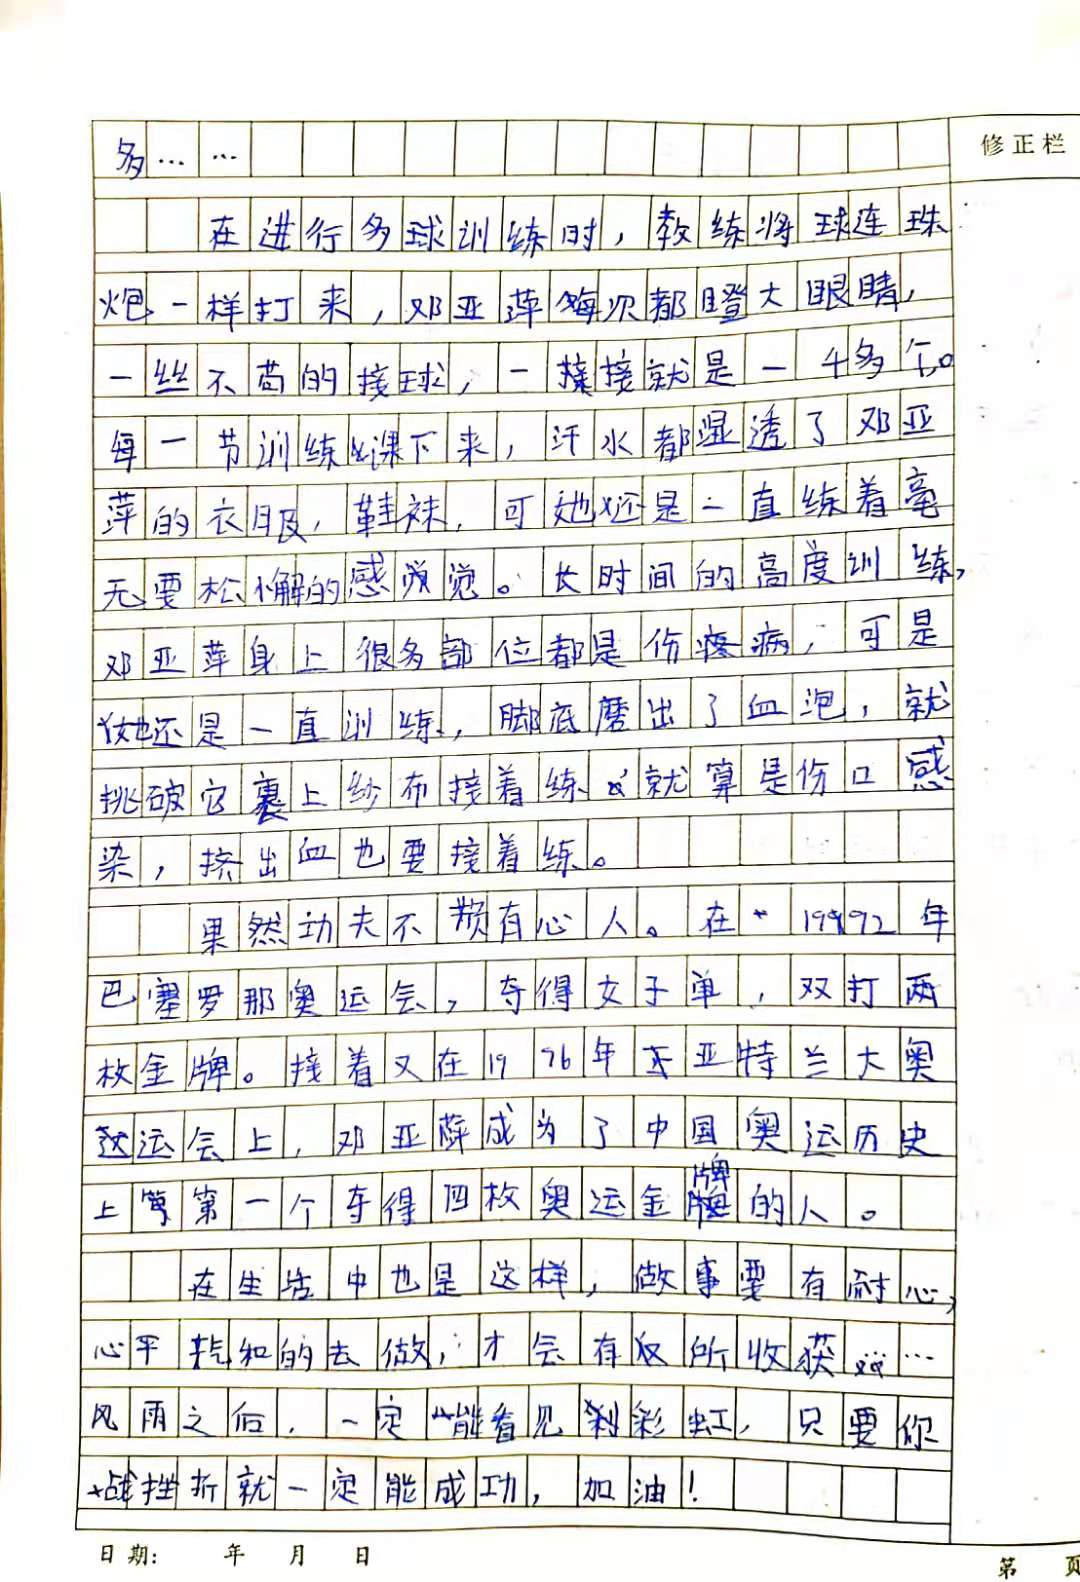 修正栏
多……
在进行多球训练时，教练将球连珠
炮一样打来，邓亚萍每次都瞪大眼睛，
一丝不苟的接球，一接就是一千多个。
每一节训练课下来，汗水都湿透了邓亚
萍的衣服，鞋袜，可她还是一直练着毫
无要松懈的感觉。长时间的高度训练，
邓亚萍身上很多部位都是伤疼病，可是
她还是一直训练，脚底磨出了血泡，就
挑破它裹上纱布接着练就算是伤口感
染，挤出血也要接着练。
果然功夫不负有心人。在1992年
巴塞罗那奥运会，夺得女子单，双打两
枚金牌。接着又在1996年亚特兰大奥
运会上，邓亚萍成为了中国奥运历史
上第一个夺得四枚奥运金牌的人。
在生活中也是这样，做事要有耐心，
心平气和的去做，才会有所收获……
风雨之后，一定能看见彩虹，只要你
战挫折就一定能成功，加油！
日期： 年 月 日
第 页